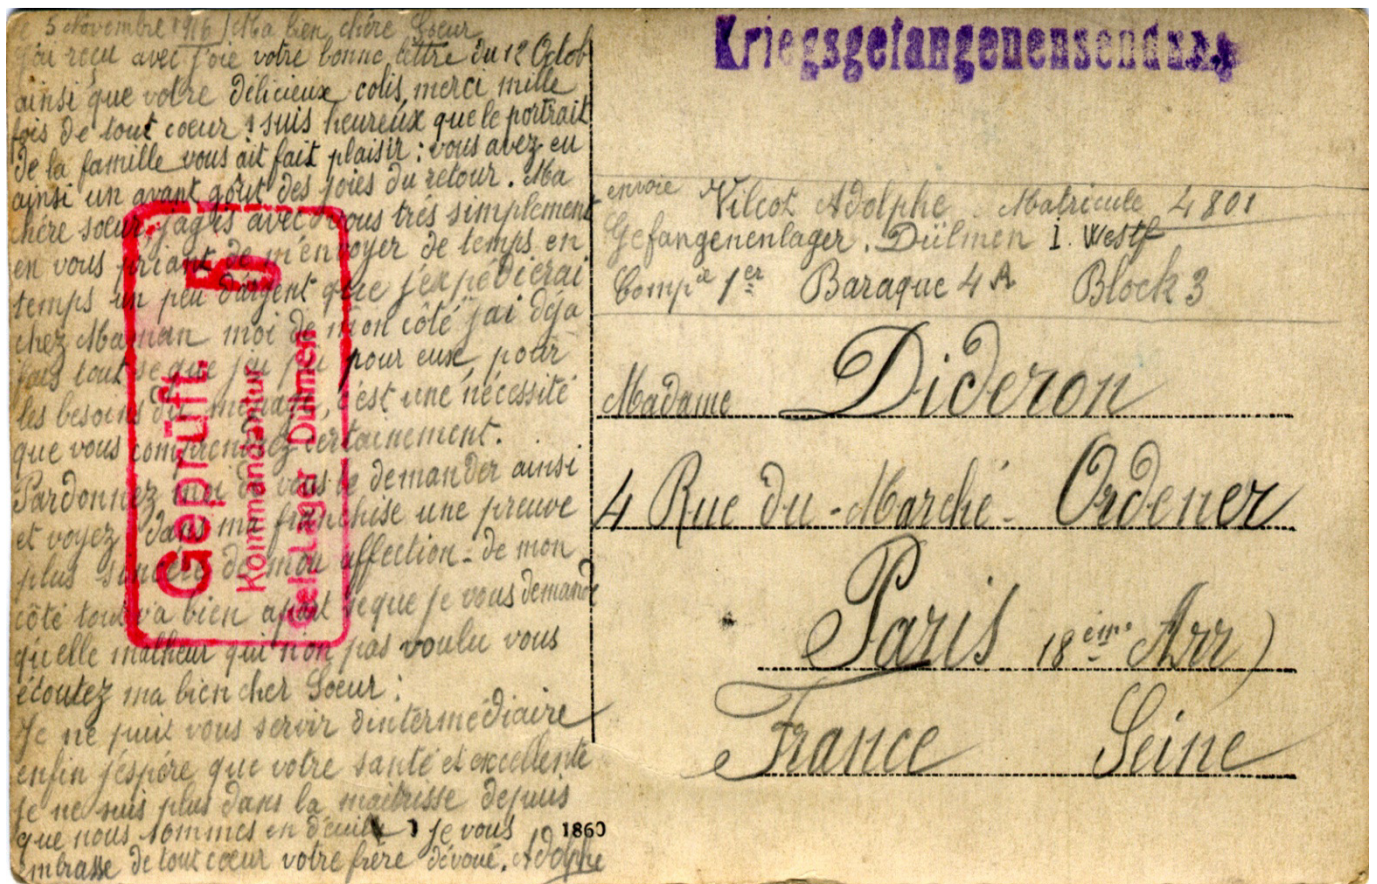 5 Novembre 1916 Ma bien chère Soeur
J'ai reçu avec Joie votre bonne lettre du 12 Octob
ainsi que votre délicieux colis, merci mille
fois de tout coeur ! suis heureux que le portrait
de la famille vous ait fait plaisir : vous avez eu
ainsi un avant goût des joies du retour. Ma
chère soeur, j'agis avec vous très simplement
en vous priant de m'envoyer de temps en
temps un peu d'argent que j'expédierai
chez Maman moi de mon côté j'ai déja
fais tout se que j'ai pu pour eux, pour
les besoins du ménage, c'est une nécessité
que vous comprenez certainement.
Pardonnez moi de vous le demander ainsi
et voyez dans ma franchise une preuve
plus sincère de mon affection - de mon
côté tout va bien apart seque je vous demande
qu'elle malheur qui n'on pas voulu vous
écoutez ma bien cher Soeur :
Je ne puis vous servir dintermédiaire
enfin j'espére que votre santé est excellente
je ne suis plus dans la depuis
que nous sommes en Je vous
embrasse de tout coeur votre frère dévoué. Adolphe
1860
Geprüft. 6
Kommandantur
Gef. Lager Dülmen
Kriegsgefangenensendung
envoie Vilcot Adolphe Matricule 4801
Gefangenenlager. Dülmen I. Westf
Comp ie 1er Baraque 4A Block 3
Madame Dideron
4 Rue du - Marché - Ordener
Paris 18ème Arr)
France Seine